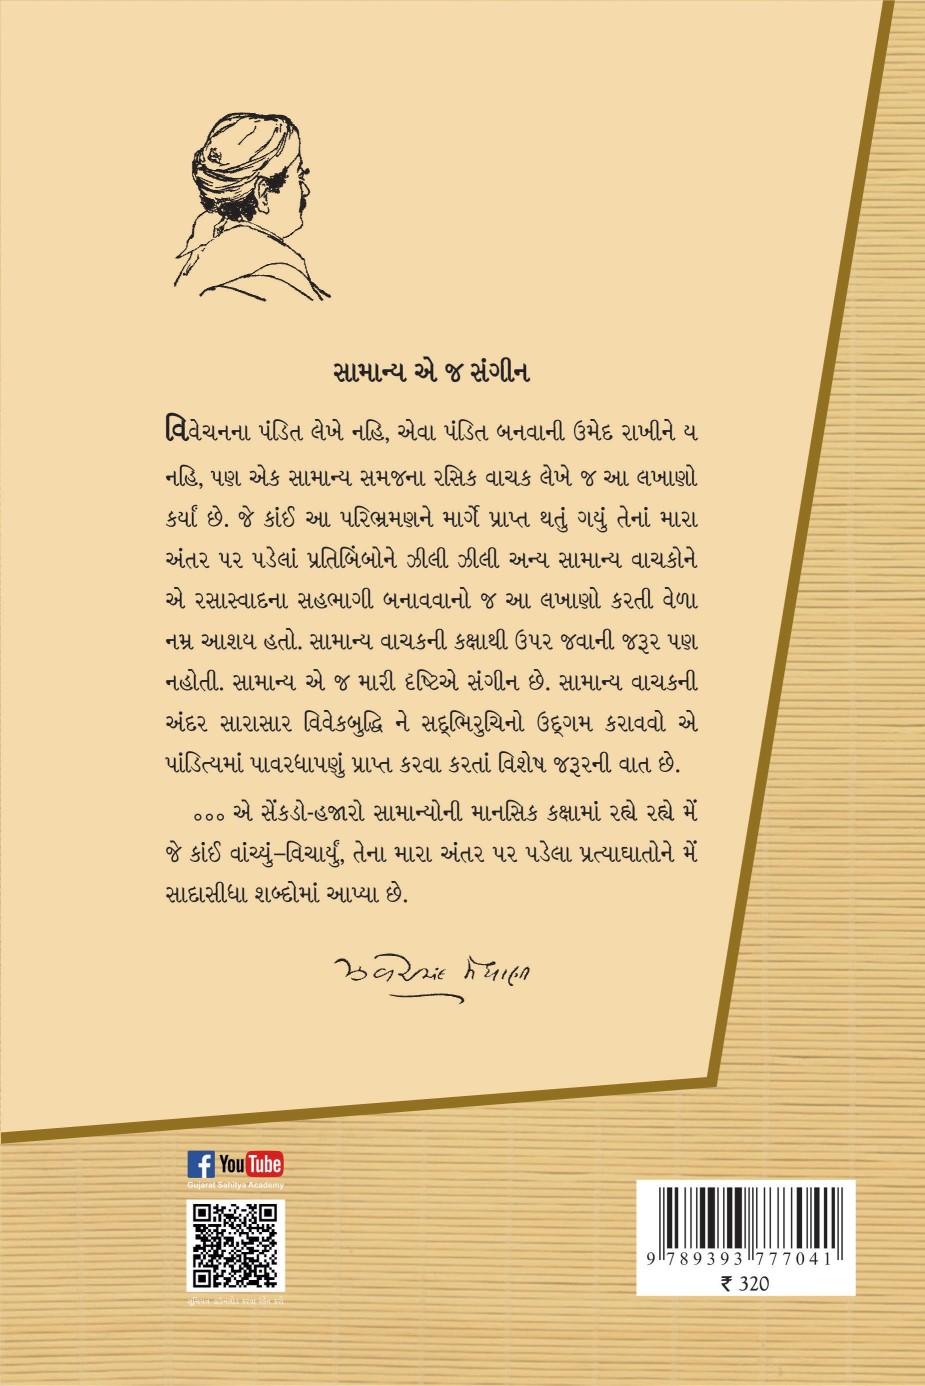 સામાન્ય એ જ સંગીન
વિવેચનના પંડિત લેખે નહિ, એવા પંડિત બનવાની ઉમેદ રાખીને ય
નહિ, પણ એક સામાન્ય સમજના રસિક વાચક લેખે જ આ લખાણો
કર્યાં છે. જે કાંઈ આ પરિભ્રમણને માર્ગે પ્રાપ્ત થતું ગયું તેનાં મારા
અંતર પર પડેલાં પ્રતિબિંબોને ઝીલી ઝીલી અન્ય સામાન્ય વાચકોને
એ રસાસ્વાદના સહભાગી બનાવવાનો જ આ લખાણો કરતી વેળા
નમ્ર આશય હતો. સામાન્ય વાચકની કક્ષાથી ઉપર જવાની જરૂર પણ
નહોતી. સામાન્ય એ જ મારી દૃષ્ટિએ સંગીન છે. સામાન્ય વાચકની
અંદર સારાસાર વિવેકબુદ્ધિ ને સદ્ભિરુચિનો ઉદ્ગમ કરાવવો એ
પાંડિત્યમાં પાવરધાપણું પ્રાપ્ત કરવા કરતાં વિશેષ જરૂરની વાત છે.
૦૦૦ એ સેંકડો-હજારો સામાન્યોની માનસિક કક્ષામાં રહ્યે રહ્યે મેં
જે કાંઈ વાંચ્યું–વિચાર્યું, તેના મારા અંતર પર પડેલા પ્રત્યાઘાતોને મેં
સાદાસીધા શબ્દોમાં આપ્યા છે.
ઝવેરચંદ મેઘાણી
f YouTube
Gujarat Sahitya Academy
9 789393 777041
₹ 320